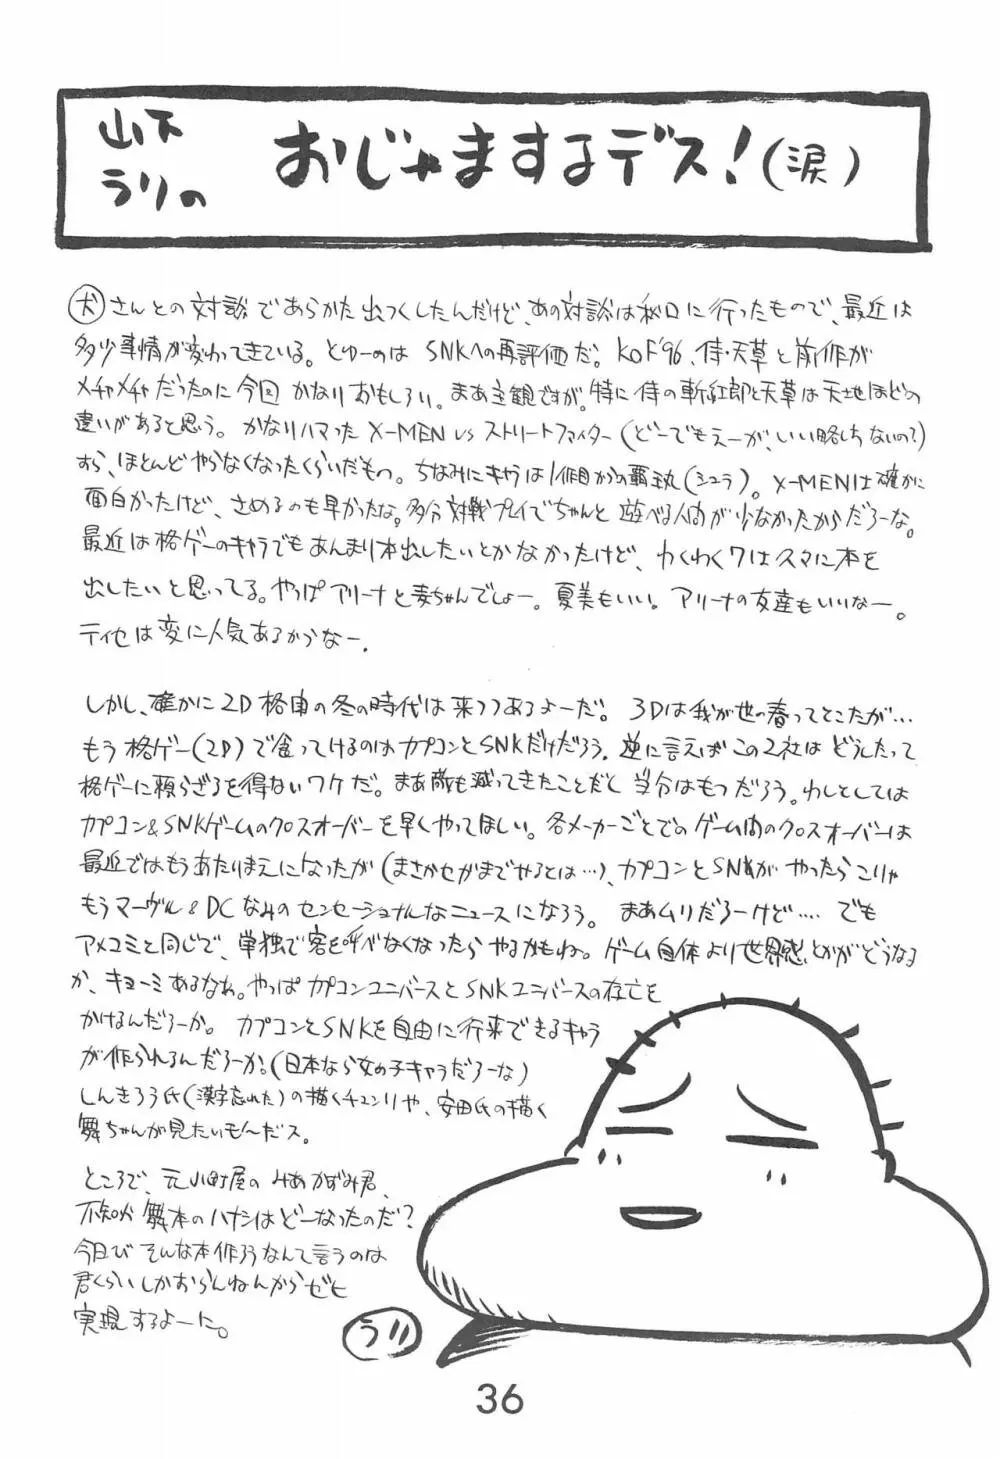 山下
ラリの
おじゃまするデス!(涙)
犬さんとの対談であらかた出つくしたんだけど、あの対談は秋口に行ったもので、最近は
多少事情が変わってきている。とゆーのはSNKへの再評価だ。KOF'96、侍・天草と前作が
メチャメチャだったのに今回かなりおもしろい。まあ主観ですが。特に侍の斬紅郎と天草は天地ほどの
違いがあると思う。かなりハマったX-MEN vs ストリートファイター(どーでもえーが、いい略しちないの?)
すら、ほとんどやらなくなったくらいだもの。ちなみにキャラは1作目からの覇王丸(シュラ)。X-MENは確かに
面白かったけど、さめるのも早かったな。多分対戦プレイでちゃんと遊べる人間が少なかったからだろーな。
最近は格ゲーのキャラでもあんまり本出したいとかなかったけど、わくわく7はスマに本を
出したいと思ってる。やっぱアリーナと麦ちゃんでしょー。夏美もいい。アリーナの友達もいいなー。
ティセは変に人気あるからなー.
しかし、確かに2D格闘の冬の時代は来つつあるよーだ。3Dは我が世の春ってとこだが…
もう格ゲー(2D)で食ってけるのはカプコンとSNKだけだろう。逆に言えばこの2社はどうしたって
格ゲーに頼らざるを得ないワケだ。まあ敵も減ってきたことだし当分はもつだろう。わしとしては
カプコン&SNKゲームのクロスオーバーを早くやってほしい。各メーカーごとでのゲーム間のクロスオーバーは
最近ではもうあたりまえになったが(まさかセガまでやるとは…)、カプコンとSNKがやったらこりゃ
もうマーヴル&DCなみのセンセーショナルなニュースになろう。まあムリだろーけど…. でも
アメコミと同じで、単独で客を呼べなくなったらやるかもね。ゲーム自体より世界感とかがどうなる
か、キョーミあるなね。やっぱカプコンユニバースとSNKユニバースの存亡を
かけるんだろーか。カプコンとSNKを自由に行来できるキャラ
が作られるんだろーか?(日本なら女の子キャラだろーな)
しんきろう氏(漢字忘れた)の描くチュンリや、安田氏の描く
舞ちゃんが見たいも〜だス。
ところで、元小町屋のみあかずみ君、
不知火舞本のハナシはどーなったのだ?
今日びそんな本作ろうなんて言うのは
君くらいしかおらんねんからゼヒ
実現するよーに。
ラリ
36